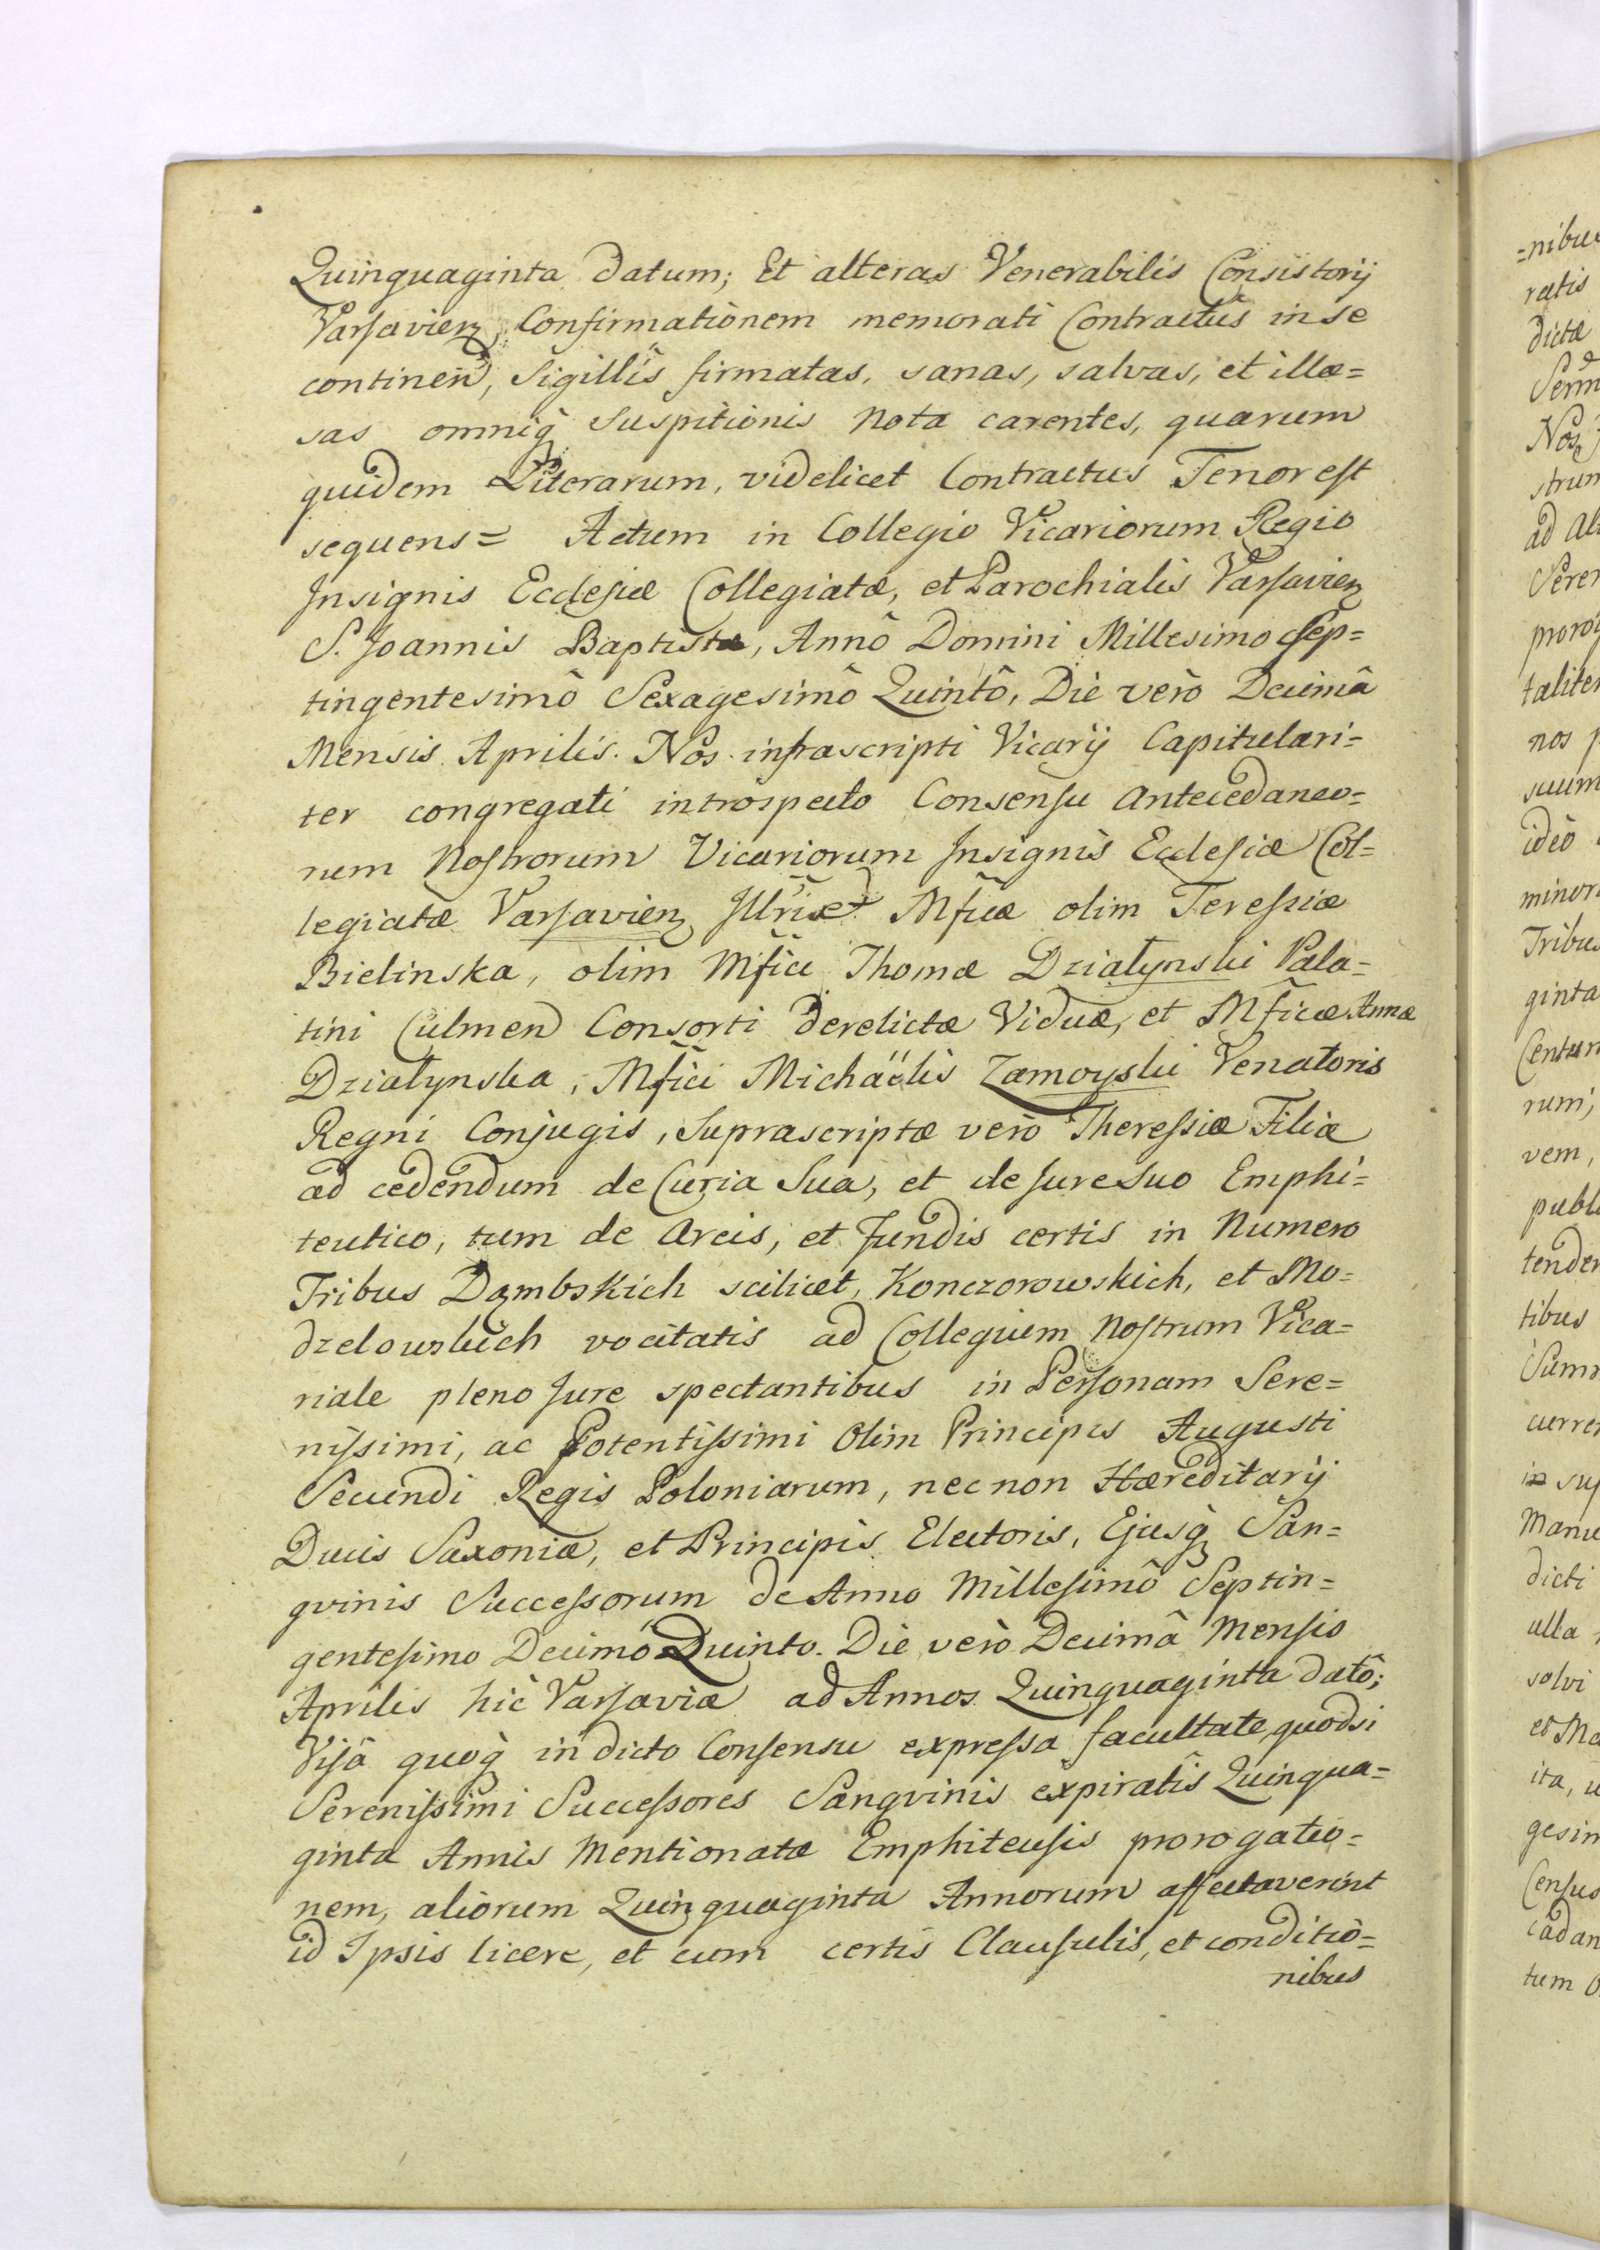 Quinquaginta datum; Et alteras Venerabilis Consistorij
Varsavien Confirmationem memorati Contractûs in se
continen, Sigillis firmatas, sanas, salvas, et illæ=
sas omniq Suspitionis nota carentes, quarum
quidem Literarum, videlicet Contractus Tenor est
sequens= Actum in Collegio Vicariorum Regio
Insignis Ecclesiæ Collegiatæ, et Parochialis Varsavien
S. Joannis Baptistæ, Annô Domini Millesimo Sep=
tingentesimô Sexagesimô Quintô, Die verò Decimâ
Mensis Aprilis. Nos infrascripti Vicarij Capitulari=
ter congregati introspecto Consensu Antecedaneo=
rum Nostrorum Vicariorum Insignis Ecclesiæ Col=
legiatæ Varsavien Illris et Mficæ olim Teressiæ
Bielinska, olim Mfici Thomæ Działynski Pala=
tini Culmen Consorti derelictæ Viduæ, et Mficæ Annæ
Działynska, Mfici Michäelis Zamoyski Venatoris
Regni Conjugis, Suprascriptæ verò Theressiæ Filiæ
ad cedendum de Curia Sua, et de Jure Suo Emphi=
teutico, tum de Areis, et Fundis certis in Numero
Tribus Dąmbskich scilicet, Konczorowskich, et Mo=
dzelowskich vocitatis ad Collegium Nostrum Vica=
riale pleno Jure spectantibus in Personam Sere=
nissimi, ac Potentissimi Olim Principis Augusti
Secundi Regis Poloniarum, nec non Hæreditarij
Ducis Saxoniæ, et Principis Electoris, Ejusq San=
gvinis Successorum de Anno Millesimô Septin=
gentesimo Decimô Quinto. Die verò Decimâ Mensis
Aprilis hîc Varsaviæ ad Annos Quinquaginta datô;
Visâ quoq in dicto Consensu expressa facultate quodsi
Serenissimi Successores Sangvinis expiratis Quinqua=
ginta Annis Mentionatæ Emphiteusis prorogatio=
nem, aliorum Quinquaginta Annorum affectaverint
id Ipsis licere, et cum certis Clausulis, et conditio=
nibus
=nibus
ratis
dictæ
Nos
ad
taliter
nos
ideò
Tribus
ginta
vem,
tibus
dicti
ulla
solvi
ita,
tum